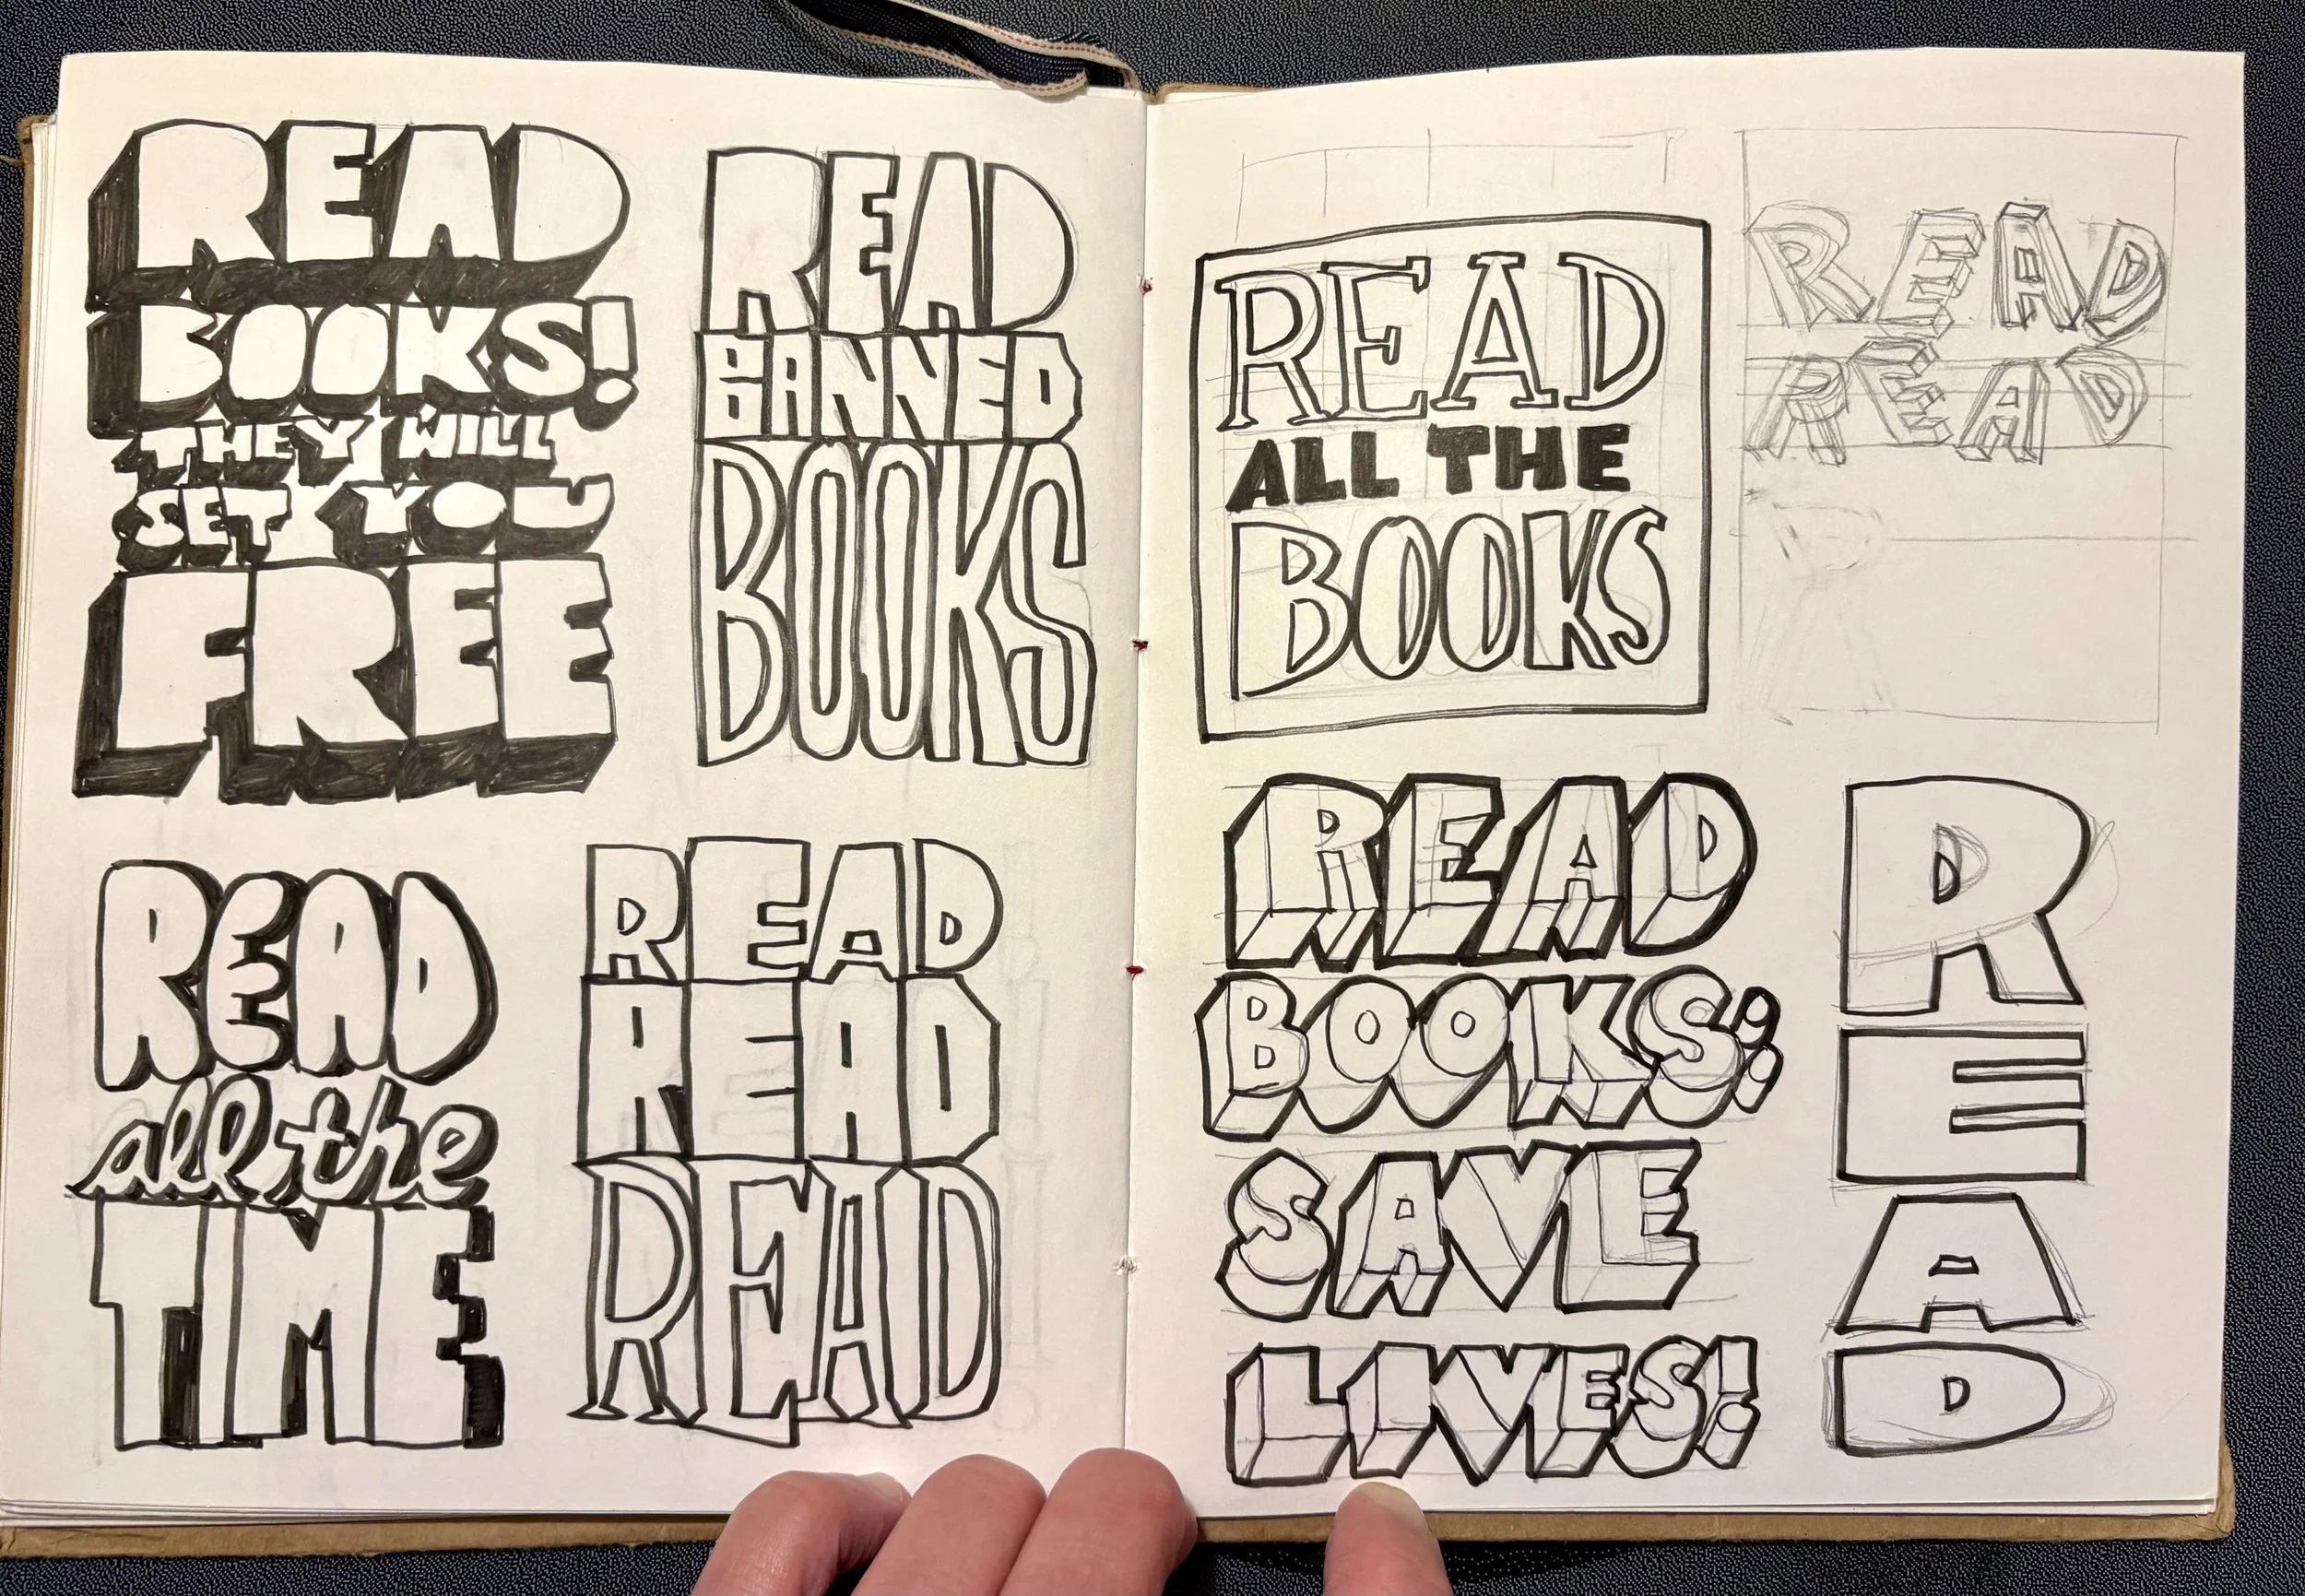 READ
BOOKS!
THEY WILL
SET YOU
FREE
READ
BANNED
BOOKS
READ
all the
TIME
READ
READ
READ
READ
ALL THE
BOOKS
READ
READ
READ
BOOKS;
SAVE
LIVES!
R
E
A
D